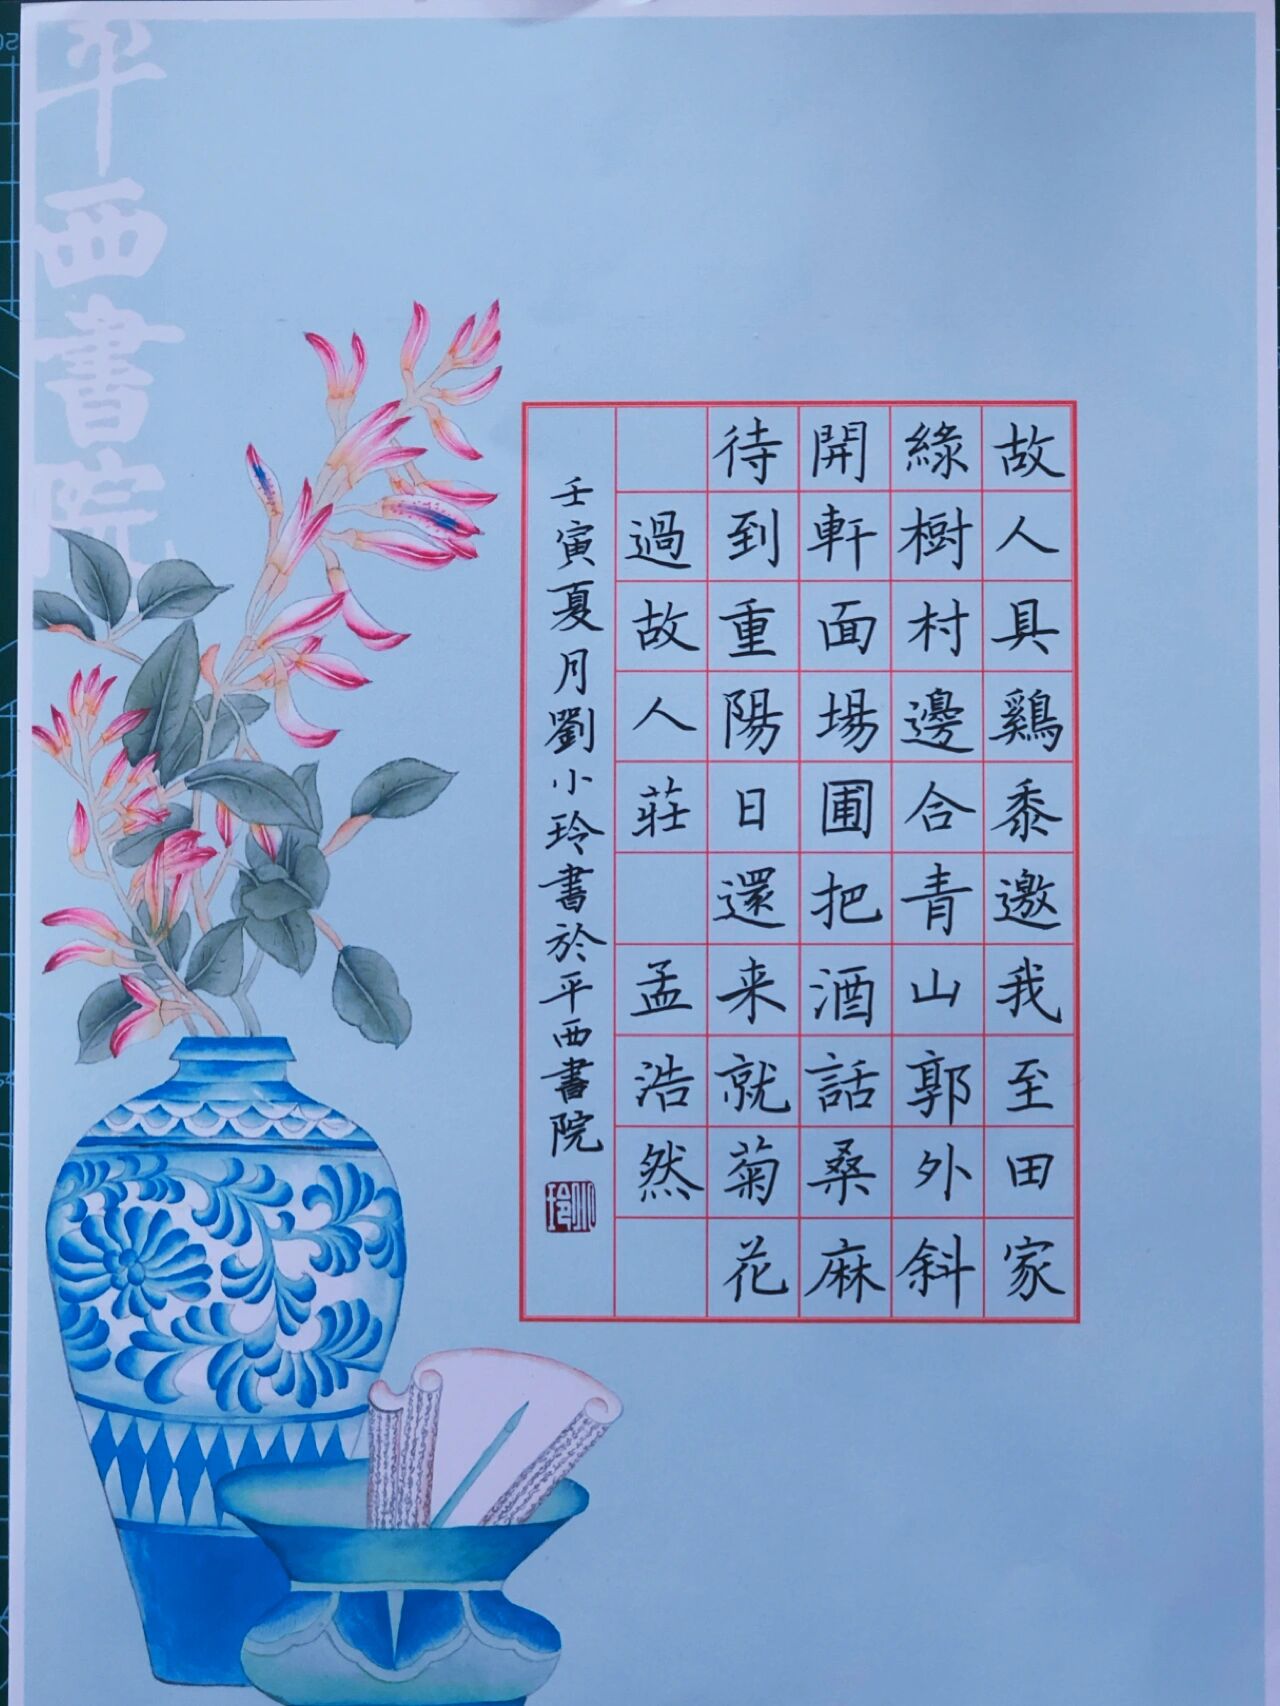 故人具鷄黍邀我至田家
綠樹村邊合青山郭外斜
開軒面場圃把酒話桑麻
待到重陽日還来就菊花
過故人莊 孟浩然
壬寅夏月劉小玲書於平西書院
小玲
平西書院